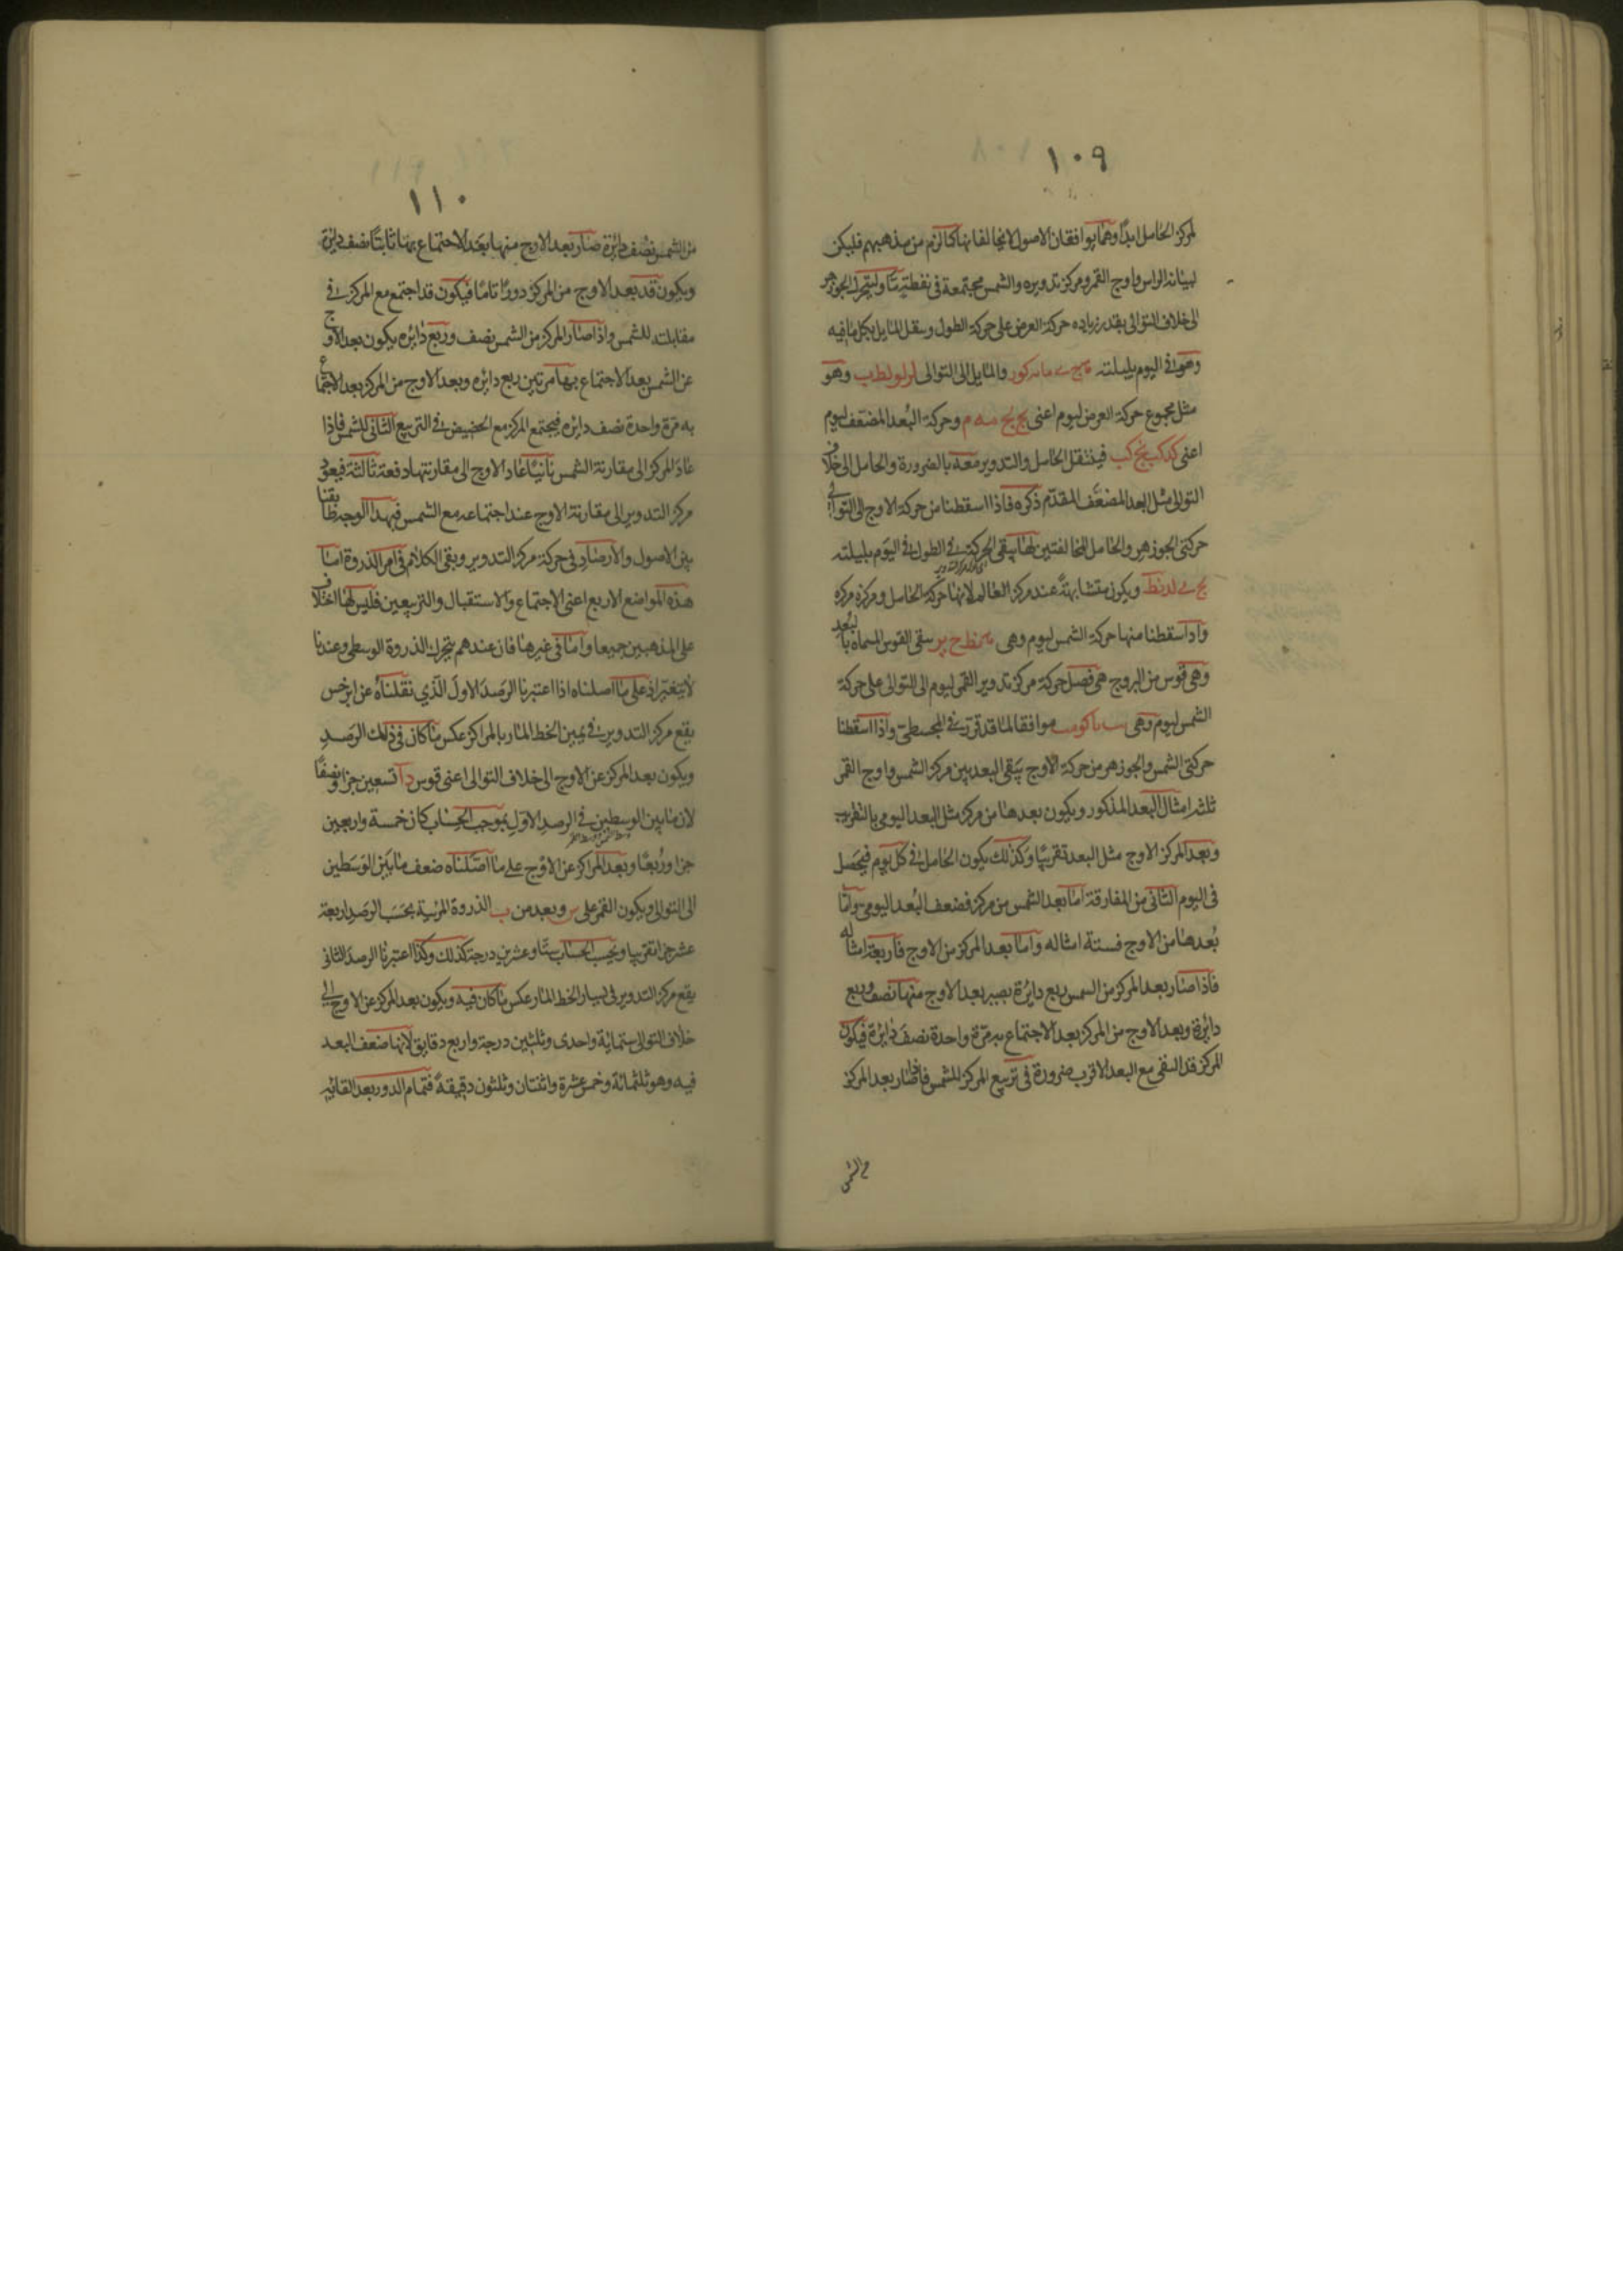 ١٠٩
لمركز الحامل ابدًا وهما يوافقان الاصول لا يخالفانها كما لزم من مذهبهم فليكن
لبيانه الراس واوج القمر ومركز تدويره والشمس مجتمعة في نقطة ما وليتحرك الجوزهر
الى خلاف التوالى بقدر زياده حركة العرض على حركة الطول وينقل المايل بكل ما فيه
وهو في اليوم بليلته والمايل الى التوالى وهو
مثل مجموع حركة العرض ليوم اعنى يج يج مه م وحركة البُعد المضعّف ليوم
اعنى كد كب نج كب فيننقل الحامل والتدوير معه بالضرورة والحامل الى خلاف
التوالى مثل البعد المضعّف المقدّم ذكره فاذا اسقطنا من حركة الاوج الى التوالى
حركتى الجوزهر والحامل المخالفتين لها يبقى الحركة في الطول في اليوم بليلته
يج ى لد نط ويكون متشابهةً عند مركز العالم لانها حركة الحامل ومركزه مركزه
واذا اسقطنا منها حركة الشمس ليوم وهى نط ح يبقى القوس المسماة بالبُعد
وهى قوس من البروج هى فضل حركة مركز تدوير القمر ليوم الى التوالى على حركة
الشمس ليوم وهى موافقا لما قد قرّر في المجسطى واذا اسقطنا
حركتى الشمس والجوزهر من حركة الاوج يبقى البعد بين مركز الشمس واوج القمر
ثلثة امثال البعد المذكور ويكون بعدها من مركز مثل البعد اليومى بالتقريب
وبعد المركز الاوج مثل البعد تقريبًا وكذلك يكون الحامل في كل يوم فيحصل
في اليوم الثاني من المفارقة امّا بعد الشمس من مركز فضعف البُعد اليومى وامّا
بُعدها من الاوج فستة امثاله وامّا بعد المركز من الاوج فاربعة امثاله
فاذا صار بعد المركز من الشمس ربع دايرة يصير بعد الاوج منها نصف وربع
دايرة وبعد الاوج من المركز بعد الاجتماع به مرّة واحدة نصف دايرة فيكون
المركز قد التقى مع البعد الاقرب ضرورة في تربيع المركز للشمس فاذا صار بعد المركز
من الشمس
١١٠
من الشمس نصف دايرة صار بعد الاوج منها بعد الاجتماع بها ثانيًا نصف دايرة
ويكون قد بعد الاوج من المركز دورًا تامًا فيكون قد اجتمع مع المركز في
مقابلته للشمس واذا صار المركز من الشمس نصف وربع دايره يكون بعد الاوج
عن الشمس بعد الاجتماع بها مرتين ربع دايره وبعد الاوج من المركز بعد الاجتماع
به مرة واحدة نصف دايره فيجتمع المركز مع الحضيض في التربيع الثاني للشمس فاذا
عاد المركز الى مقارنة الشمس ثانيًا عاد الاوج الى مقارنتها دفعة ثالثة فيعود
مركز التدوير الى مقارنة الاوج عند اجتماعه مع الشمس فبهذا الوجه طابقنا
بين الاصول والارصاد في حركة مركز التدوير وبقى الكلام في امر الذروة امّا
هذه المواضع الاربع اعنى الاجتماع والاستقبال والتربيعين فليس لها اختلاف
على المذهبين جميعا وامّا في غيرها فان عندهم يتحرك الذروة الوسطى وعندنا
لا يتغير اذ على ما اصلناه اذا اعتبرنا الرصد الاول الذي نقلناه عن ابرخس
يقع مركز التدوير في يمين الخط المار بالمراكز عكس ما كان في ذلك الرصد
ويكون بعد المركز عن الاوج الى خلاف التوالى اعنى قوس دآ تسعين جزا ونصفًا
لان ما بين الوسطين في الرصد الاول بموجب الحساب كان خمسة واربعين
جزا ورُبعًا وبعد المراكز عن الاوج على ما اصّلناه ضعف ما بين الوسطين
الى التوالى ويكون القمر على س وبعد من ب الذروة المرئية بحسب الرصد اربعة
عشر جزا تقريبا وبحسب الحساب ستًا وعشرين درجة كذلك وكذا اعتبرنا الرصد الثاني
يقع مركز التدوير في يسار الخط المار عكس ما كان فيه ويكون بعد المركز عن الاوج الى
خلاف التوالى ستمائة واحدى وثلثين درجة واربع دقايق لانها ضعف البعد
فيه وهو ثلثمائة وخمس عشرة واثنتان وثلثون دقيقةً فتمام الدور بعد القائه